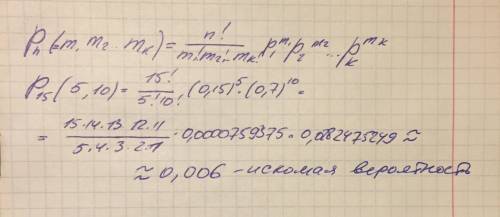 Pₙ(m₁ m₂ ... mₖ) = n! / m₁! m₂! ... mₖ! p₁^m₁ p₂^m₂ ... pₖ^mₖ
P₁₅(5,10) = 15! / 5! 10! · (0,15)⁵ · (0,7)¹⁰ =
= 15·14·13·12·11 / 5·4·3·2·1 · 0,0000759375 · 0,0282475249 ≈
≈ 0,006 – искомая вероятность